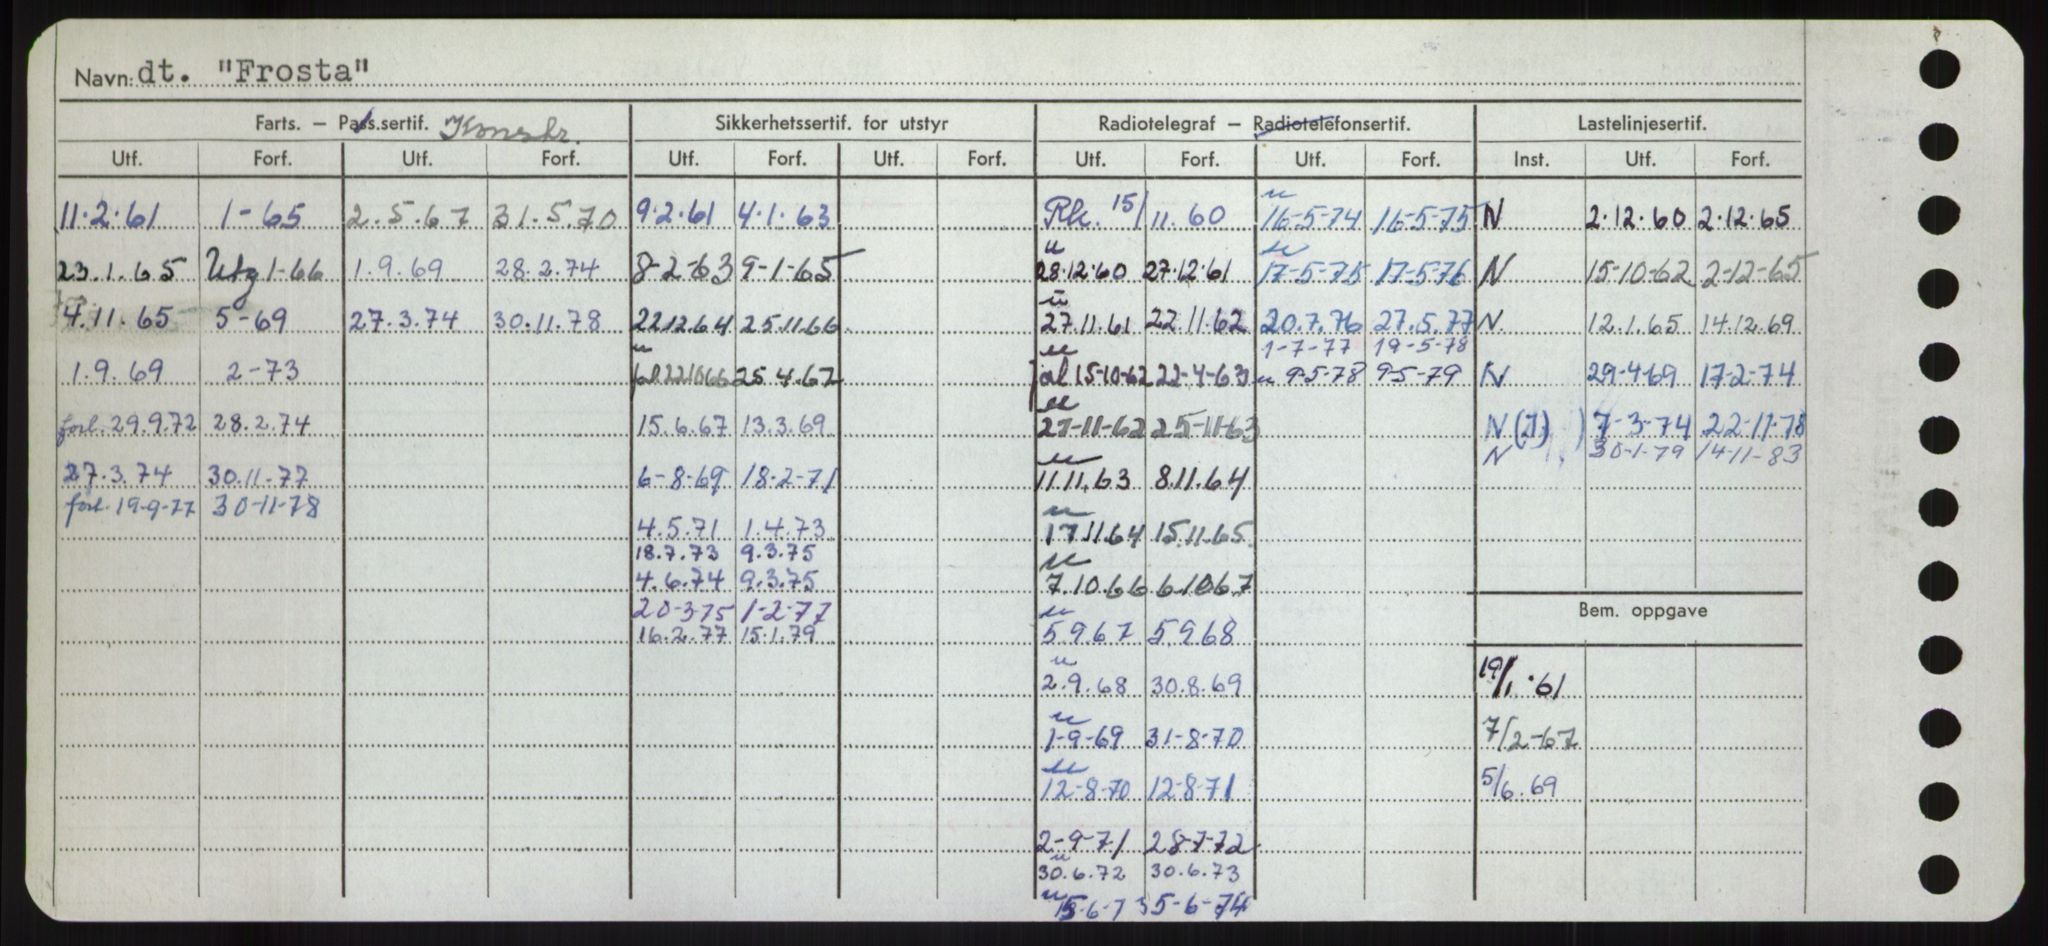 Navn: dt. "Frosta"
Farts. – Pass.sertif. Konstr. Sikkerhetssertif. for utstyr Radiotelegraf – Radiotelefonsertif. Lastelinjesertif.
Utf. Forf. Utf. Forf. Utf. Forf. Utf. Forf. Utf. Forf. Utf. Forf. Inst. Utf. Forf.
11.2.61 1-65 2.5.67 31.5.70 9.2.61 4.1.63 Rk. 15/11.60 u 16-5-74 16-5-75 N 2.12.60 2.12.65
23.1.65 Utg 1-66 1.9.69 28.2.74 8-2-63 9-1-65 u 28.12.60 27.12.61 u 17-5-75 17-5-76 N 15-10-62 2-12-65
4.11.65 5-69 27.3.74 30.11.78 22.12.64 25.11.66 u 27.11.61 22.11.62 20.7.76 27.5.77 N 12.1.65 14.12.69
1-7-77 19-5-78
1.9.69 2-73 u 22.10.66 25.4.67 u 15-10-62 22-4-63 u 9-5-78 9-5-79 N 29-4-69 17-2-74
forl. 29.9.72 28.2.74 15.6.67 13.3.69 u 27-11-62 25-11-63 N (J) 7-3-74 22-11-78
N 30-1-79 14-11-83
27.3.74 30.11.77 6-8-69 18-2-71 u 11.11.63 8.11.64
forl. 19-9-77 30-11-78
4.5.71 1.4.73 u 17.11.64 15.11.65
18.7.73 9.3.75
4.6.74 9.3.75 u 7.10.66 6.10.67
20-3-75 1-2-77
16.2.77 15.1.79 u 5.9.67 5.9.68
Bem. oppgave
u 2.9.68 30.8.69 19/1.61
u 1-9-69 31-8-70 7/2-67
u 12-8-70 12-8-71 5/6.69
2-9-71 28-7-72
u 30.6.72 30.6.73
u 15-6-73 5-6-74